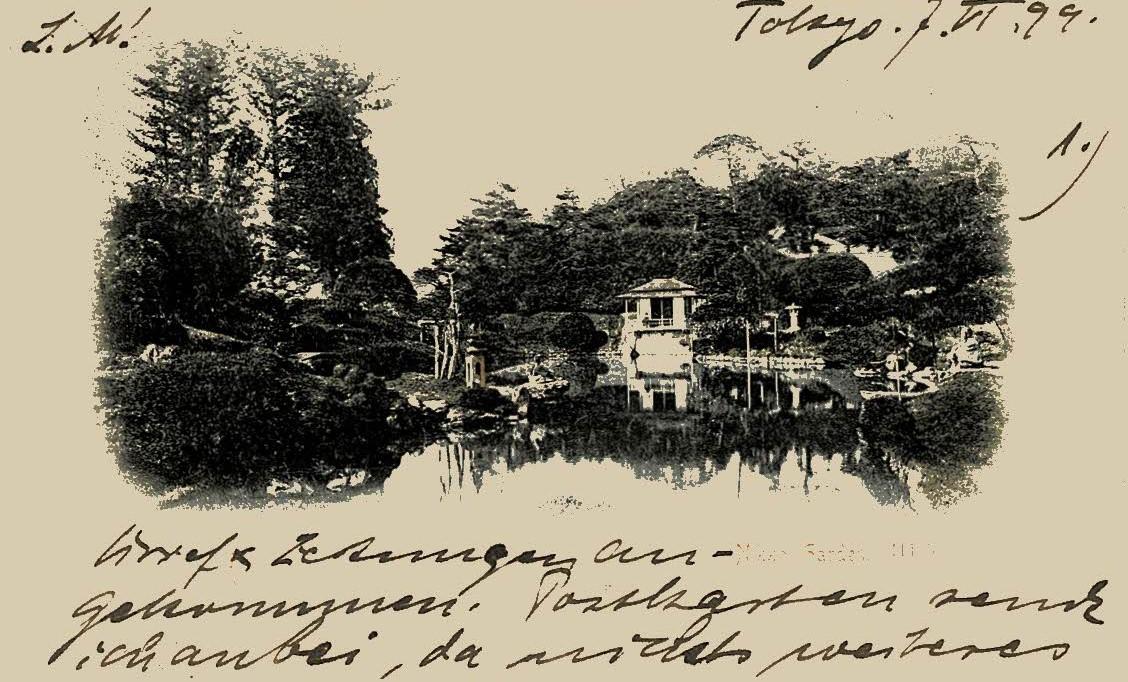 L. M!
Tokyo. 7. VI. 99.
1.)
Brief & Zeitungen an-
gekommen. Postkarten sende
ich anbei, da nichts weiteres
Garden